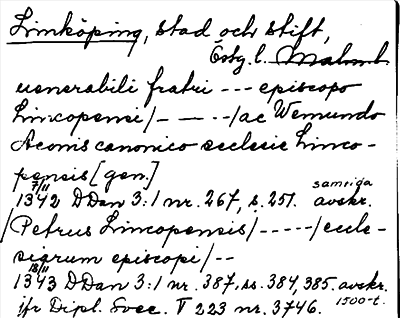 Linköping, stad och stift,
Östg. l.
uenerabili fratri --- episcopo
Lincopensi/- — --/ac Wemundo
Aconis canonico ecclesie Linco-
pensis [gen.]
7/11 samtida
1342 DDan 3:1 nr. 267, s. 251. avskr.
/Petrus Lincopensis/-----/eccle-
siarum episcopi/--
18/11
1343 DDan 3:1 nr. 387, ss. 384, 385. avskr.
jfr Dipl. Svec. V 223 nr. 3746. 1500-t.